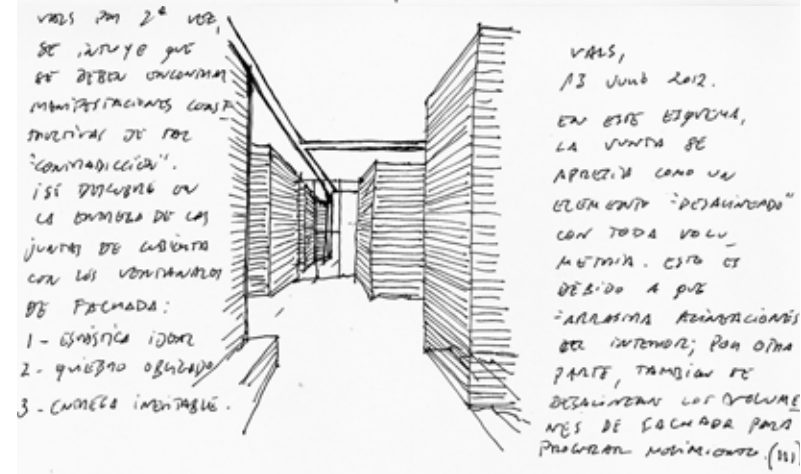 VALS POR 2ª VEZ,
SE INTUYE QUE
SE DEBEN ENCONTRAR
MANIFESTACIONES CONS-
TRUCTIVAS DE TAL
"CONTRADICCIÓN".
¡SE DESCUBRE EN
LA ENTREGA DE LAS
JUNTAS DE CUBIERTA
CON LOS VENTANALES
DE FACHADA:
1 - ESTÁSTICA IDEAL
2 - QUIEBRO OBLIGADO
3 - ENTREGA INEVITABLE.
VALS,
13 JUNIO 2012.
EN ESTE ESQUEMA,
LA JUNTA SE
APRECIA COMO UN
ELEMENTO "DESALINEADO"
CON TODA VOLU-
METRÍA. ESTO ES
DEBIDO A QUE
"ARRASTRA ALINEACIONES
DEL INTERIOR; POR OTRA
PARTE, TAMBIÉN SE
DESALINEAN LOS VOLUME
NES DE FACHADA PARA
PROCURAR MOVIMIENTO.